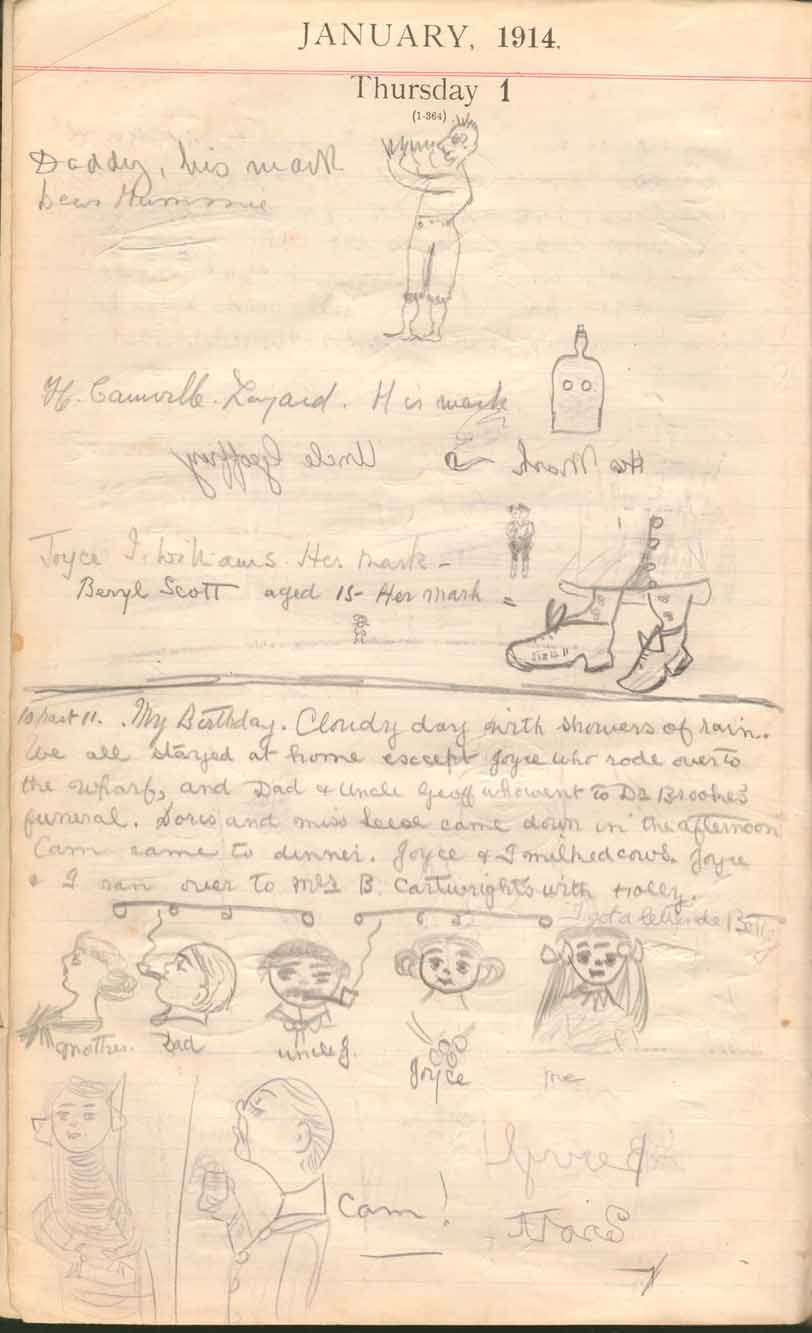 JANUARY, 1914.
Thursday 1
(1-364)
Daddy, his mark
H. Camville. Layard. His mark
Uncle Geoffroy His Mark
Joyce I. Williams. Her mark -
Beryl Scott aged 15 - Her mark =
SIZE 11
10 past 11. My Birthday. Cloudy day with showers of rain.
We all stayed at home except Joyce who rode over to
the Wharf, and Dad & Uncle Geoff who went to Dr Brookes
funeral. Doris and miss Leese came down in the afternoon
Cam came to dinner. Joyce & I milked cows. Joyce
& I ran over to Mrs B. Cartwrights with Holly.
I got a letter de
mother. Dad uncle G. Joyce me
Cam!
Beryl
Scott